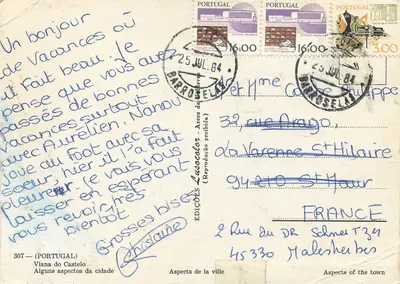 Un bonjour
de vacances où
il fait beau. Je
pense que vous avez
passés de bonnes
vacances surtout
avec Aurélien. Nanou
joue au foot avec sa
soeur, hier il l'a fait
pleurer. Je vais vous
laisser en espérant
vous revoir très
bientôt
Grosses bises
Ghislaine
307 — (PORTUGAL)
Viana do Castelo
Alguns aspectos da cidade
Aspects de la ville
Aspects of the town
EDIÇÕES Lusocolor
(Reprodução proibida)
PORTUGAL
16.00
PORTUGAL
16.00
3.00
25 JUL. 84
BARROSELAS
25 JUL. 84
BARROSELAS
et Mme Philippe
32, rue Arago,
La Varenne St Hilaire
94210 St Maur
FRANCE
2 Rue du DR Schneitzer
45330 Malesherbes